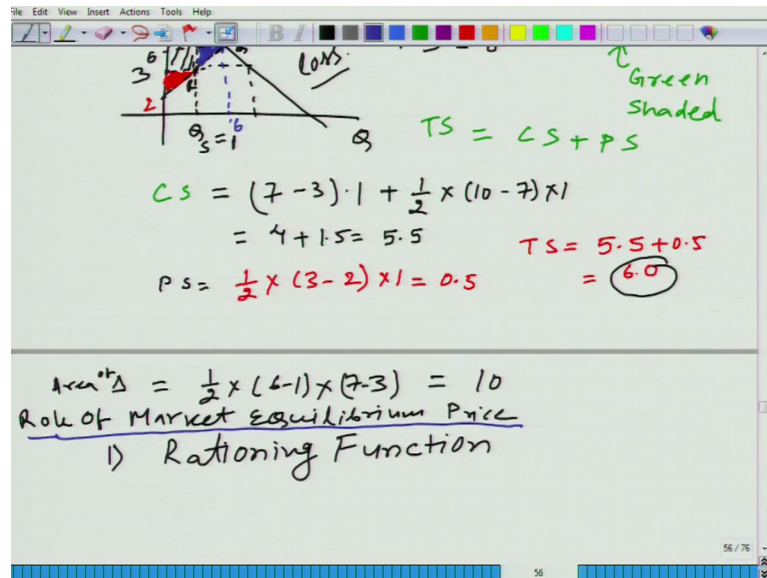 ile Edit View Insert Actions Tools Help
B I
6
3
2
Loss.
Green
Shaded
Qs = 1
6
Q
TS = CS + PS
CS = (7-3)·1 + 1/2 × (10-7)×1
= 4 + 1.5 = 5.5
TS = 5.5+0.5
PS = 1/2 × (3-2) ×1 = 0.5
= 6.0
Area of Δ = 1/2 × (6-1) × (7-3) = 10
Role Of Market Equilibrium Price
1) Rationing Function
56 / 76
56